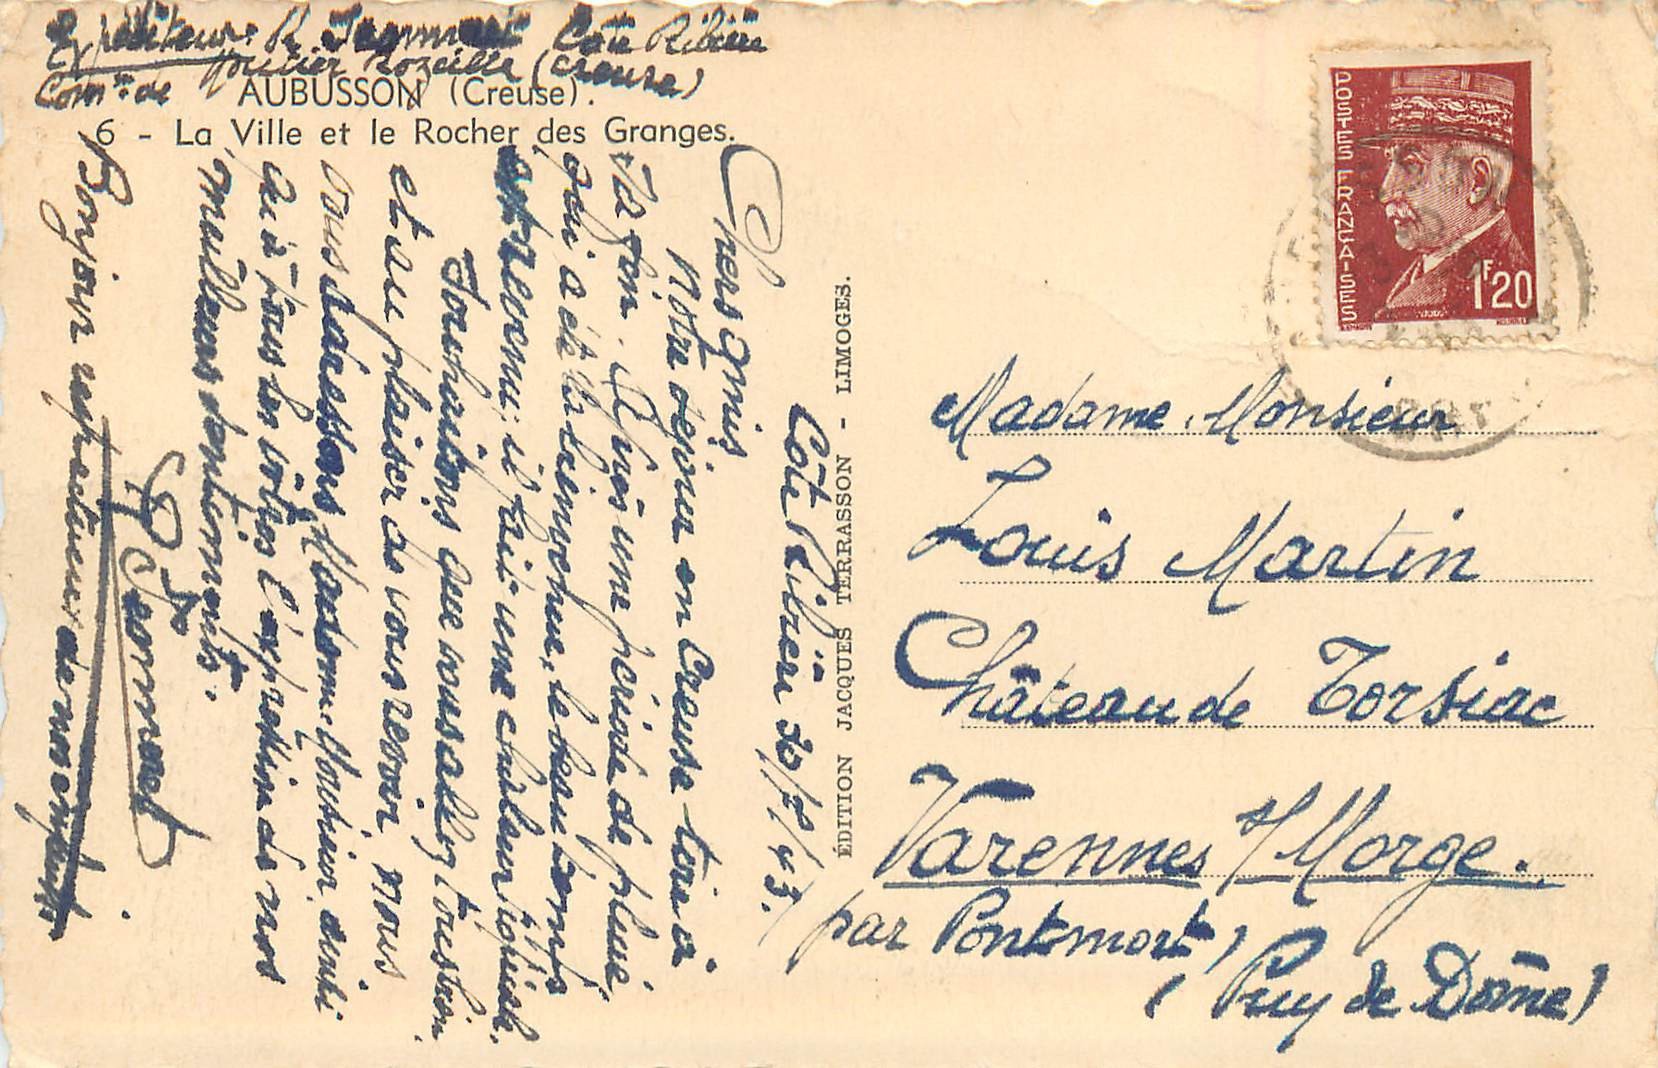 Expéditeur: R. Jeormeat Côte Ribière
Com^ne de Moutier Rozeille (Creuse)
AUBUSSON (Creuse).
6 - La Ville et le Rocher des Granges.
POSTES FRANÇAISES
1F20
ÉDITION JACQUES TERRASSON - LIMOGES.
Côte Ribière 30/7/43.
Chers Amis
Notre séjour en Creuse tire à
sa fin. Après une période de pluie,
qui a été la bienvenue, le beau temps
est revenu; il fait une chaleur tropicale.
Souhaitons que vous allez tous bien
et au plaisir de vous revoir nous
vous adressons, Madame, Monsieur, ainsi
qu'à tous les vôtres l'expression de nos
meilleurs sentiments.
Bonjour respectueux de nos enfants
Madame, Monsieur
Louis Martin
Château de Torsiac
Varennes s/Morge.
par Pontmort,
(Puy de Dôme)